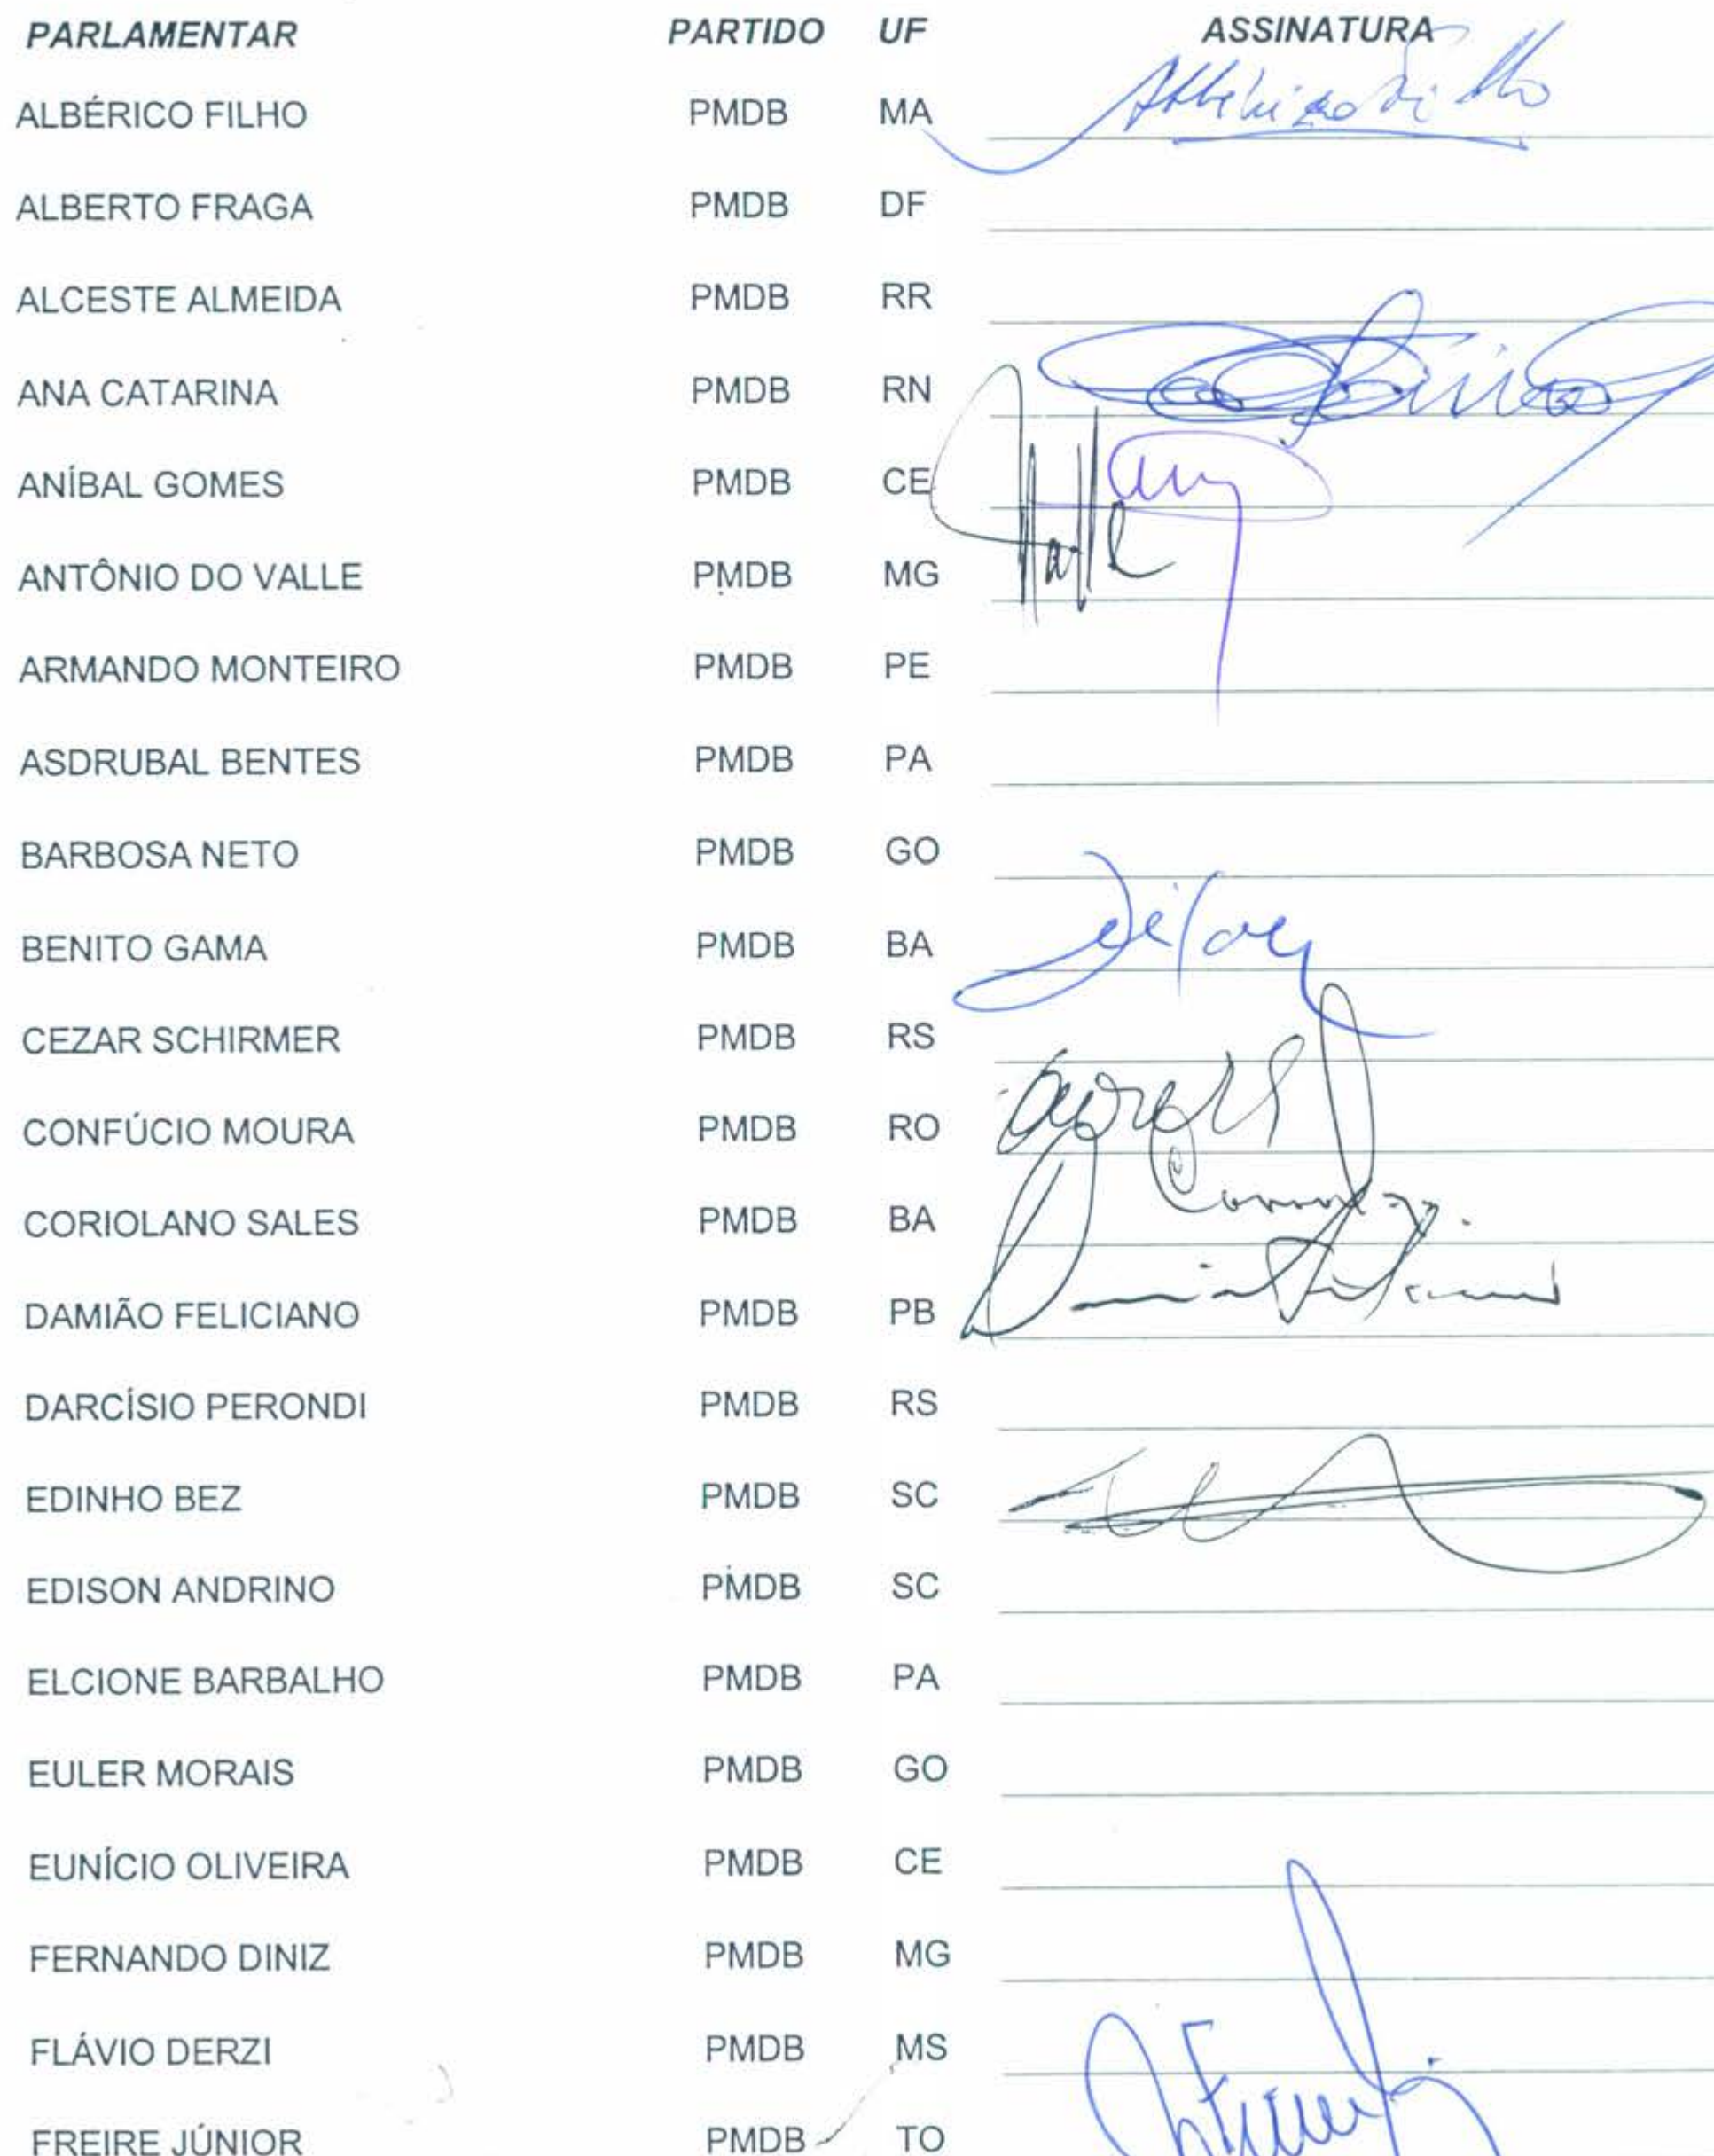 PARLAMENTAR PARTIDO UF ASSINATURA
ALBÉRICO FILHO PMDB MA
ALBERTO FRAGA PMDB DF
ALCESTE ALMEIDA PMDB RR
ANA CATARINA PMDB RN
ANÍBAL GOMES PMDB CE
ANTÔNIO DO VALLE PMDB MG
ARMANDO MONTEIRO PMDB PE
ASDRUBAL BENTES PMDB PA
BARBOSA NETO PMDB GO
BENITO GAMA PMDB BA
CEZAR SCHIRMER PMDB RS
CONFÚCIO MOURA PMDB RO
CORIOLANO SALES PMDB BA
DAMIÃO FELICIANO PMDB PB
DARCÍSIO PERONDI PMDB RS
EDINHO BEZ PMDB SC
EDISON ANDRINO PMDB SC
ELCIONE BARBALHO PMDB PA
EULER MORAIS PMDB GO
EUNÍCIO OLIVEIRA PMDB CE
FERNANDO DINIZ PMDB MG
FLÁVIO DERZI PMDB MS
FREIRE JÚNIOR PMDB TO